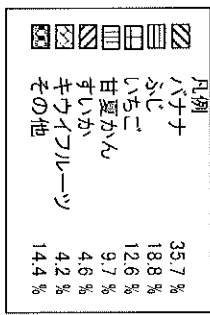 凡例
バナナ 35.7 %
ふじ 18.8 %
いちご 12.6 %
甘夏かん 9.7 %
すいか 4.6 %
キウイフルーツ 4.2 %
その他 14.4 %